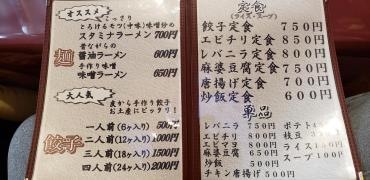 オススメ
こってり
とろけるモツ(中味)味噌炒め
スタミナラーメン 700円
昔ながらの
醤油ラーメン 600円
手作り味噌
味噌ラーメン 650円
麺
大人気
皮から手作り餃子
お土産にピッタリ!
餃子
一人前(6ヶ入り) 500円
二人前(12ヶ入り) 1000円
三人前(18ヶ入り) 1500円
四人前(24ヶ入り) 2000円
定食
(ライス・スープ)
餃子定食 750円
エビチリ定食 850円
レバニラ定食 800円
麻婆豆腐定食 750円
唐揚げ定食 700円
炒飯定食 600円
単品
レバニラ 750円
エビチリ 800円
エビマヨ 800円
麻婆豆腐 650円
炒飯 500円
チキン唐揚げ 500円
ポテト
枝豆
ライス
スープ 100円